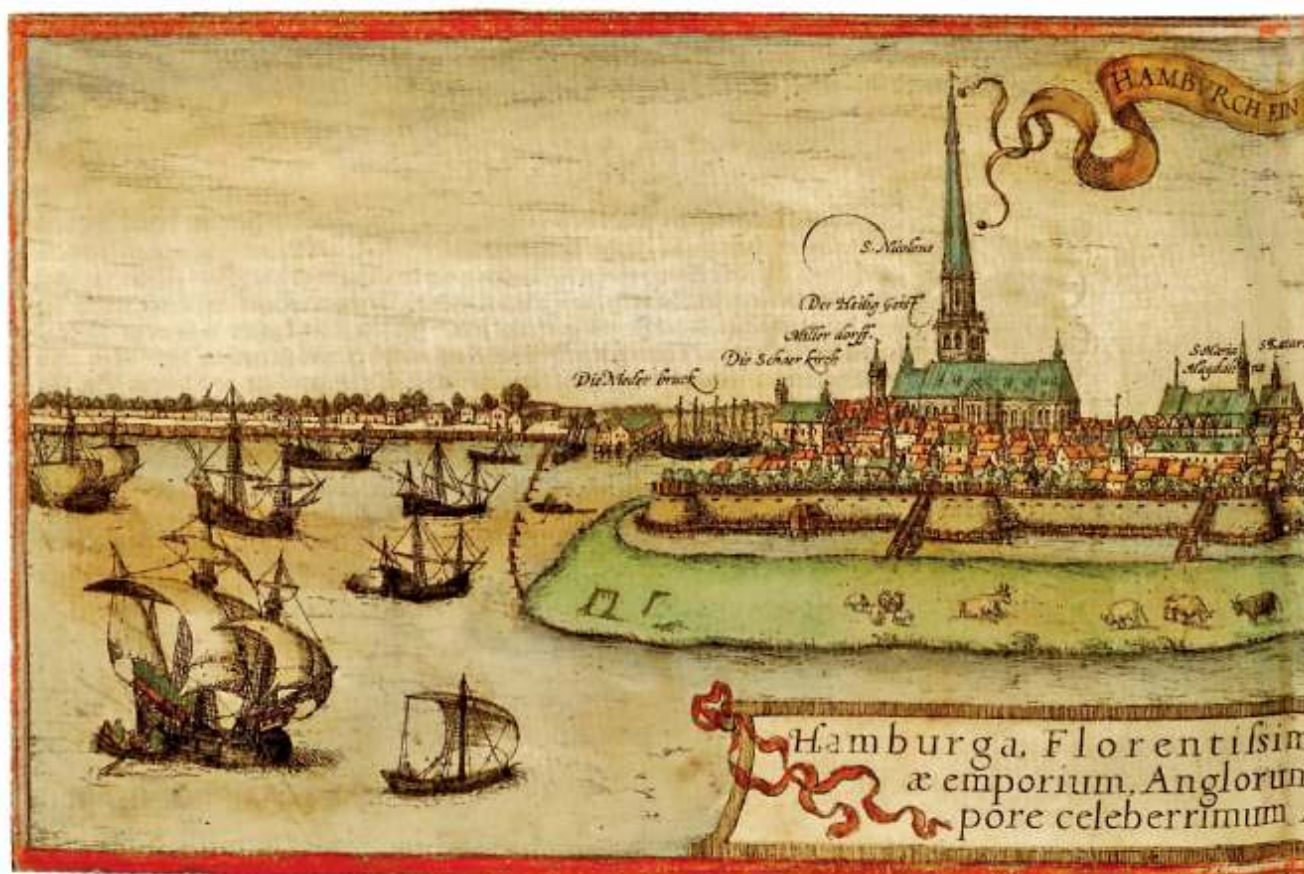 HAMBVRCH EIN
S. Nicolaus
Der Heilig Geist
Miller dorff.
Die Schaer kirch
Die Nieder bruck
S. Maria
Magdale
na
S Katar
Hamburga, Florentiſsim
æ emporium, Anglorum
pore celeberrimum